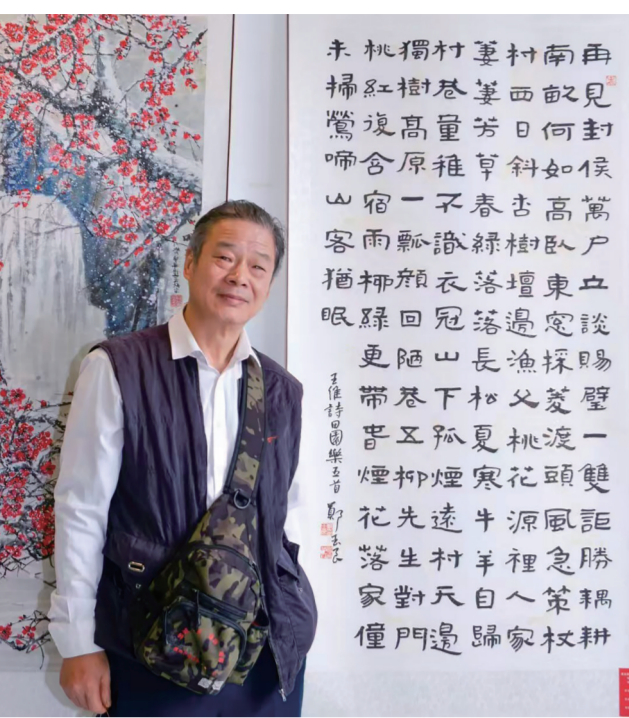 再見封侯萬戶立談賜璧一雙詎勝耦耕
南畝何如高臥東窓採菱渡頭風急策杖
村西日斜杏樹壇邊漁父桃花源裡人家
萋萋芳草春綠落落長松夏寒牛羊自歸
村巷童稚不識衣冠山下孤煙遠村天邊
獨樹高原一瓢顏回陋巷五柳先生對門
桃紅復含宿雨柳綠更帶春煙花落家僮
未掃鶯啼山客猶眠
王維詩田園樂五首 鄭